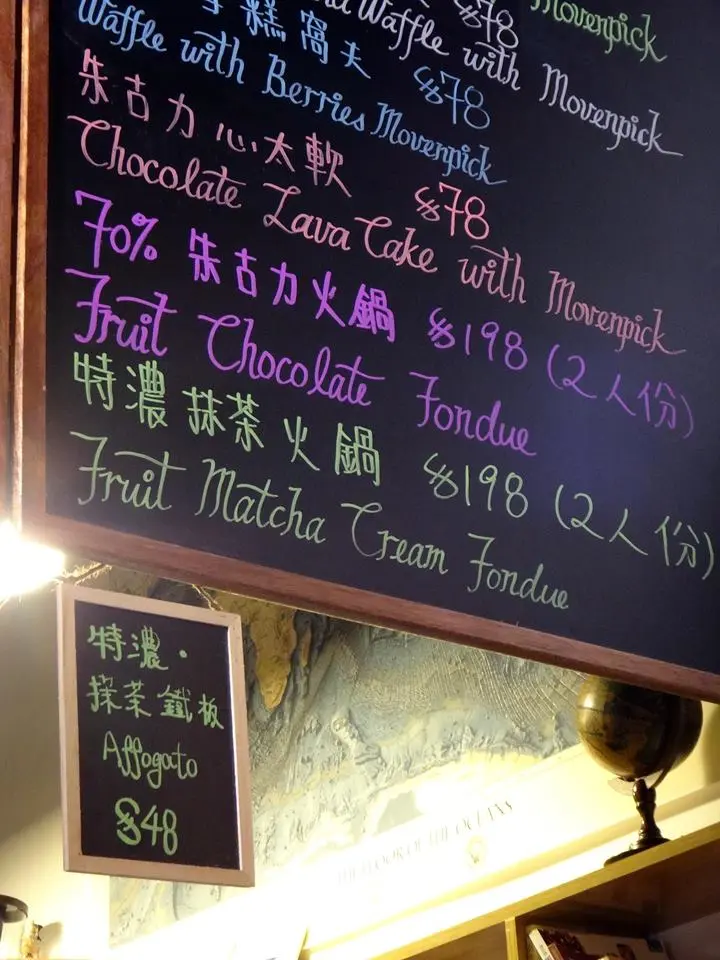 $78 Movenpick
and Waffle with Movenpick
糕窩夫 $78
Waffle with Berries Movenpick
朱古力心太軟 $78
Chocolate Lava Cake with Movenpick
70% 朱古力火鍋 $198 (2人份)
Fruit Chocolate Fondue
特濃抹茶火鍋 $198 (2人份)
Fruit Matcha Cream Fondue
特濃·
抹茶鐵板
Affogato
$48
THE FLOOR OF THE OCEANS